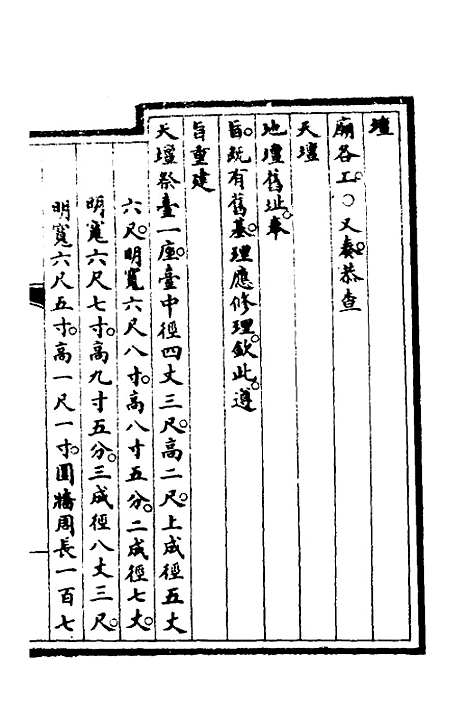 壇
廟各工。○又奏。恭查
天壇
地壇舊址。奉
旨。既有舊基。理應修理。欽此。遵
旨重建
天壇祭臺一座。臺中徑四丈三尺。高二尺。上成徑五丈
六尺。明寬六尺八寸。高八寸五分。二成徑七丈。
明寬六尺七寸。高九寸五分。三成徑八丈三尺。
明寬六尺五寸。高一尺一寸。圓牆周長一百七